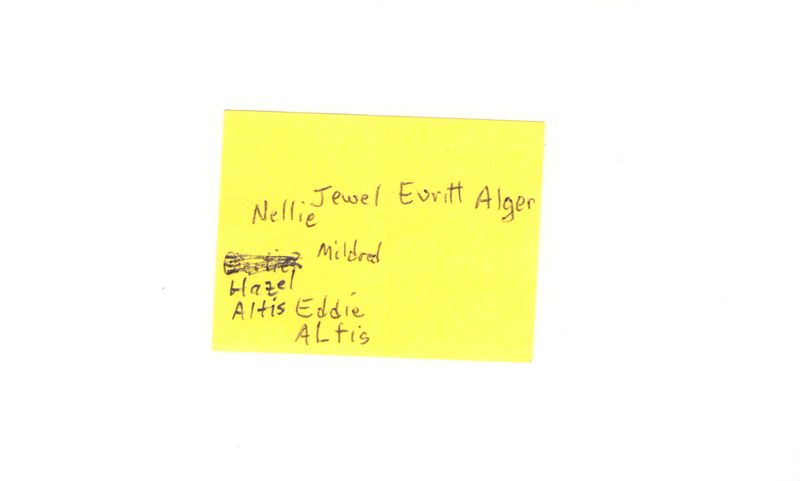 Jewel Evritt Alger
Nellie
Mildred
Hazel
Altis Eddie
ALtis